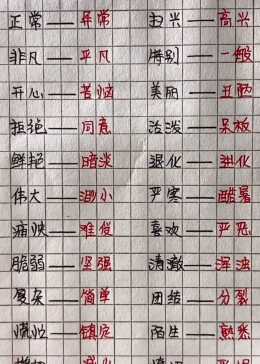 正常——异常 扫兴——高兴
非凡——平凡 特别——一般
开心——苦恼 美丽——丑陋
拒绝——同意 活泼——呆板
鲜艳——暗淡 退化——进化
伟大——渺小 严寒——酷暑
痛快——难受 喜欢——厌恶
脆弱——坚强 清澈——浑浊
复杂——简单 团结——分裂
慌忙——镇定 陌生——熟悉
减少